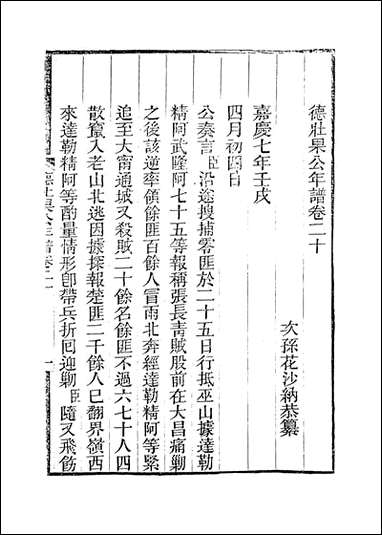 德壯果公年譜卷二十
次孫花沙納恭纂
嘉慶七年壬戌
四月初四日
公奏言臣沿途搜捕零匪於二十五日行抵巫山據達勒
精阿武隆阿七十五等報稱張長青賊股前在大昌痛勦
之後該逆率領餘匪百餘人冒雨北奔經達勒精阿等緊
追至大甯通城又殺賊二十餘名餘匪不過六七十人四
散竄入老山北逃因據探報楚匪二千餘人已翻界嶺西
來達勒精阿等酌量情形卽帶兵折回迎勦臣隨又飛飭
德壯果公年譜卷二十
一